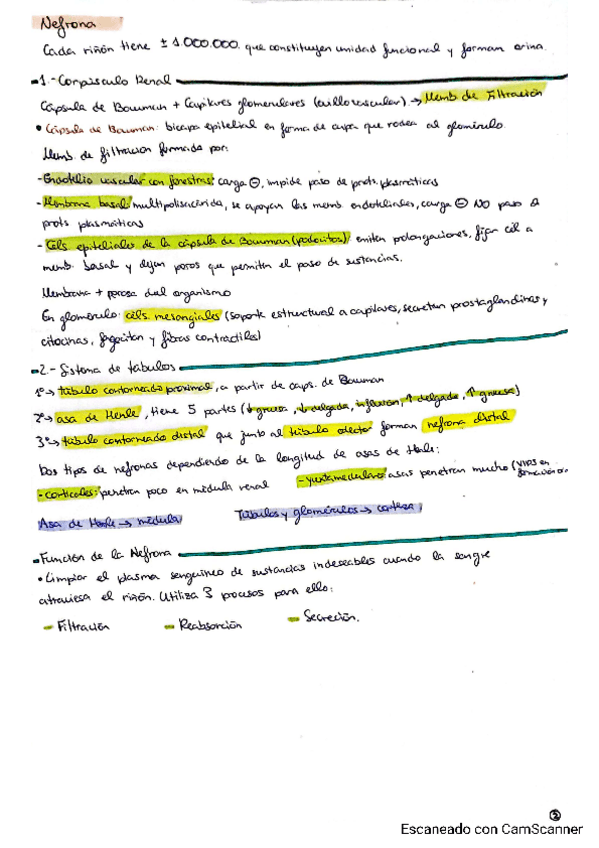 Nefrona
Cada riñón tiene ± 1.000.000. que constituyen unidad funcional y forman orina.
1.- Corpúsculo Renal
Cápsula de Bowman + Capilares glomerulares (ovillo vascular) → Memb. de Filtración
• Cápsula de Bowman: bicapa epitelial en forma de copa que rodea al glomérulo.
Memb. de filtración formada por:
- Endotelio vascular con fenestras: carga ⊖, impide paso de prots. plasmáticas
- Membrana basal: multipolisacárida, se apoyan las memb. endoteliales, carga ⊖ NO paso a
prots plasmáticas
- Céls. epiteliales de la cápsula de Bowman (podocitos): emiten prolongaciones, fijan cél a
memb. basal y dejan poros que permiten el paso de sustancias.
Membrana + porosa del organismo
En glomérulo: céls. mesangiales (soporte estructural a capilares, secretan prostaglandinas y
citocinas, fagocitan y fibras contráctiles)
2.- Sistema de túbulos
1º → túbulo contorneado proximal, a partir de caps. de Bowman
2º → asa de Henle, tiene 5 partes (↓ gruesa, ↓ delgada, inflexión, ↑ delgada, ↑ gruesa)
3º → túbulo contorneado distal que junto al túbulo colector forman nefrona distal
Dos tipos de nefronas dependiendo de la longitud de asas de Henle:
- corticales: penetran poco en médula renal - yuxtamedulares: asas penetran mucho
Asa de Henle → médula Túbulos y glomérulos → corteza
Función de la Nefrona
• Limpiar el plasma sanguíneo de sustancias indeseables cuando la sangre
atraviesa el riñón. Utiliza 3 procesos para ello:
- Filtración - Reabsorción - Secreción.
2
Escaneado con CamScanner